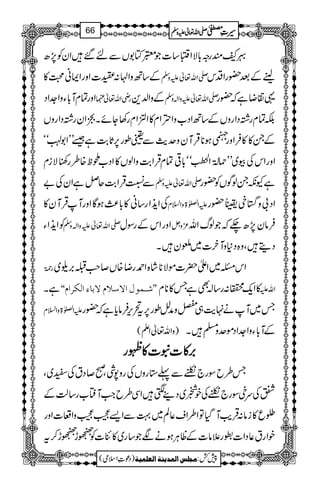 سیرت مصطفی صلی اللہ تعالیٰ علیہ وسلم 66
بہر کیف مندرجہ بالا اقتباسات جو معتبر کتابوں سے لئے گئے ہیں ان کو پڑھ
لینے کے بعد حضور اقدس صلی اللہ تعالیٰ علیہ وسلم کے ساتھ والہانہ عقیدت اور ایمانی محبت کا
یہی تقاضا ہے کہ حضور صلی اللہ تعالیٰ علیہ والہ وسلم کے والدین رضی اللہ تعالیٰ عنہما اور تمام آباء و اجداد
بلکہ تمام رشتہ داروں کے ساتھ ادب و احترام کا التزام رکھا جائے۔ بجز ان رشتہ داروں
کے جن کا کافر اور جہنمی ہونا قرآن و حدیث سے یقینی طور پر ثابت ہے جیسے ''ابولہب''
اور اس کی بیوی ''حمالۃ الحطب'' باقی تمام قرابت والوں کا ادب ملحوظ خاطر رکھنا لازم
ہے کیونکہ جن لوگوں کو حضور صلی اللہ تعالیٰ علیہ والہ وسلم سے نسبت قرابت حاصل ہے ان کی بے
ادبی و گستاخی یقیناً حضور علیہ الصلوۃ والسلام کی ایذا رسانی کا باعث ہوگا اور آپ قرآن کا
فرمان پڑھ چکے کہ جو لوگ اللہ عزوجل اور اس کے رسول صلی اللہ تعالیٰ علیہ والہ وسلم کو ایذاء
دیتے ہیں، وہ دنیا و آخرت میں ملعون ہیں۔
اس مسئلہ میں اعلیٰ حضرت مولانا شاہ احمد رضا خاں صاحب قبلہ بریلوی رحمۃ
اللہ علیہ کا ایک محققانہ رسالہ بھی ہے جس کا نام ''شمول الاسلام لآباء الکرام'' ہے۔
جس میں آپ نے نہایت ہی مفصل و مدلل طور پر یہ تحریر فرمایا ہے کہ حضور علیہ الصلوۃ والسلام
کے آباء و اجداد موحد و مسلم ہیں۔ (واللہ تعالیٰ اعلم)
برکات نبوت کا ظہور
جس طرح سورج نکلنے سے پہلے ستاروں کی روپوشی، صبح صادق کی سفیدی،
شفق کی سرخی سورج نکلنے کی خوشخبری دینے لگتی ہیں اسی طرح جب آفتاب رسالت کے
طلوع کا زمانہ قریب آ گیا تو اطراف عالم میں بہت سے ایسے عجیب عجیب واقعات اور
خوارق عادات بطور علامات کے ظاہر ہونے لگے جو ساری کائنات کو جھنجھوڑ جھنجھوڑ کر یہ
پیش کش: مجلس المدینۃ العلمیۃ (دعوت اسلامی)